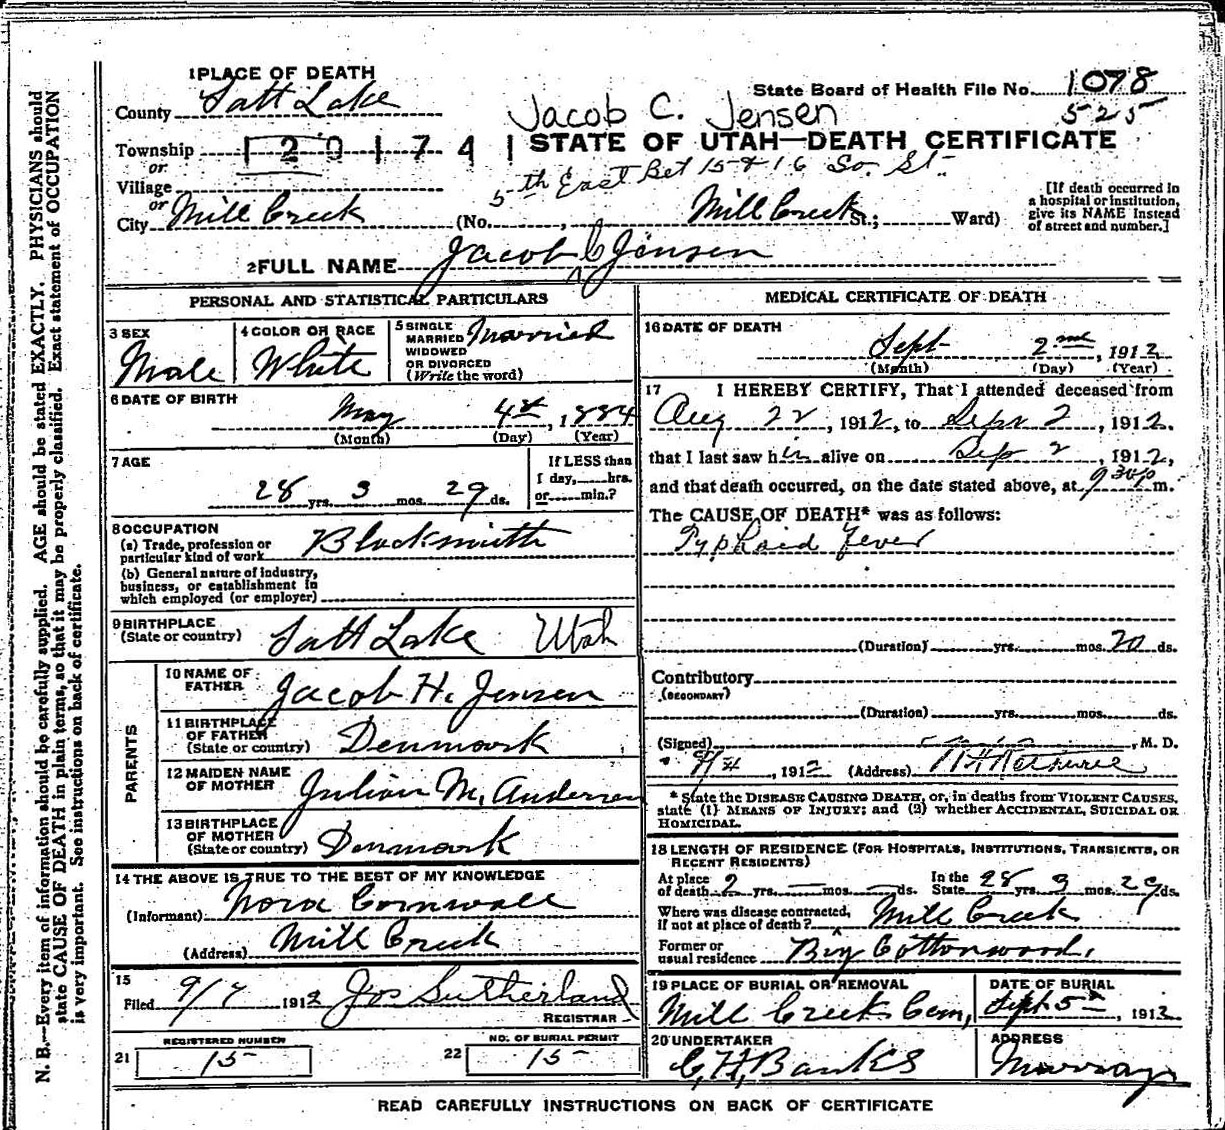 1 PLACE OF DEATH
County Salt Lake
State Board of Health File No. 1078
525
Jacob C. Jensen
Township 201741
or
STATE OF UTAH—DEATH CERTIFICATE
Village
or
5th East Bet 15 + 16 So. St.
City Mill Creek (No. , Mill Creek St.; Ward)
[If death occurred in
a hospital or institution,
give its NAME instead
of street and number.]
2 FULL NAME Jacob C Jensen
PERSONAL AND STATISTICAL PARTICULARS
3 SEX
Male
4 COLOR OR RACE
White
5 SINGLE
MARRIED
WIDOWED
OR DIVORCED
(Write the word)
Married
6 DATE OF BIRTH
May 4th, 1884
(Month) (Day) (Year)
7 AGE
28 yrs. 3 mos. 29 ds.
If LESS than
1 day, hrs.
or min.?
8 OCCUPATION
(a) Trade, profession or
particular kind of work Blacksmith
(b) General nature of industry,
business, or establishment in
which employed (or employer)
9 BIRTHPLACE
(State or country) Salt Lake Utah
PARENTS
10 NAME OF
FATHER Jacob H. Jensen
11 BIRTHPLACE
OF FATHER
(State or country) Denmark
12 MAIDEN NAME
OF MOTHER M. Andersen
13 BIRTHPLACE
OF MOTHER
(State or country) Denmark
14 THE ABOVE IS TRUE TO THE BEST OF MY KNOWLEDGE
(Informant) Nora Cornwall
(Address) Mill Creek
15
Filed 9/7 1912 Jos Sutherland
REGISTRAR
REGISTERED NUMBER
21 15
NO. OF BURIAL PERMIT
22 15
MEDICAL CERTIFICATE OF DEATH
16 DATE OF DEATH
Sept 2nd, 1912
(Month) (Day) (Year)
17 I HEREBY CERTIFY, That I attended deceased from
Aug 22, 1912, to Sept 2, 1912.
that I last saw him alive on Sep 2, 1912,
and that death occurred, on the date stated above, at 9 30 p m.
The CAUSE OF DEATH* was as follows:
Typhoid Fever
(Duration) yrs. mos. 20 ds.
Contributory
(SECONDARY)
(Duration) yrs. mos. ds.
(Signed) , M. D.
, 1912 (Address)
* State the DISEASE CAUSING DEATH, or, in deaths from VIOLENT CAUSES,
state (1) MEANS OF INJURY; and (2) whether ACCIDENTAL, SUICIDAL OR
HOMICIDAL.
18 LENGTH OF RESIDENCE (FOR HOSPITALS, INSTITUTIONS, TRANSIENTS, OR
RECENT RESIDENTS)
At place
of death 2 yrs. — mos. — ds. In the
State 28 yrs. 3 mos. 29 ds.
Where was disease contracted,
if not at place of death? Mill Creek
Former or
usual residence Big Cottonwood.
19 PLACE OF BURIAL OR REMOVAL
Mill Creek Cem,
DATE OF BURIAL
Sept. 5th, 1912
20 UNDERTAKER
C. H. Banks
ADDRESS
Murray
READ CAREFULLY INSTRUCTIONS ON BACK OF CERTIFICATE
N. B.—Every item of information should be carefully supplied. AGE should be stated EXACTLY. PHYSICIANS should
state CAUSE OF DEATH in plain terms, so that it may be properly classified. Exact statement of OCCUPATION
is very important. See instructions on back of certificate.